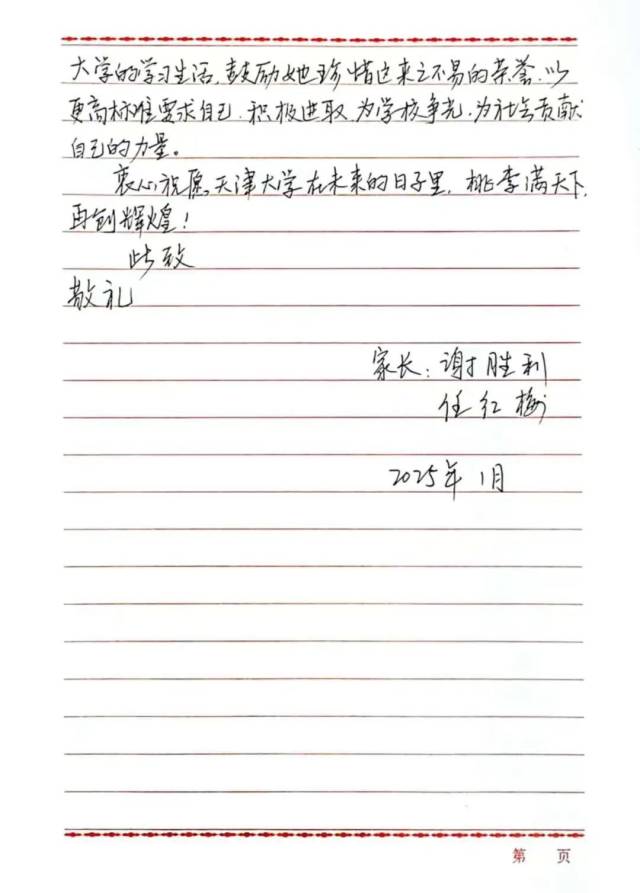 大学的学习生活，鼓励她珍惜这来之不易的荣誉，以
更高标准要求自己，积极进取，为学校争光，为社会贡献
自己的力量。
衷心祝愿天津大学在未来的日子里，桃李满天下，
再创辉煌！
此致
敬礼
家长：谢胜利
任红梅
2025年1月
第 页